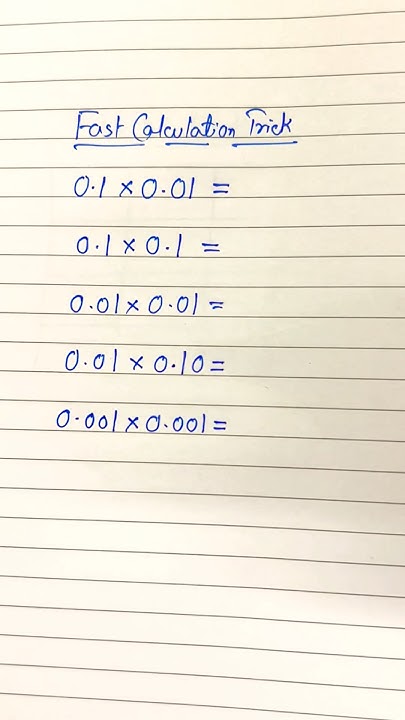 Fast Calculation Trick
0.1 × 0.01 =
0.1 × 0.1 =
0.01 × 0.01 =
0.01 × 0.10 =
0.001 × 0.001 =